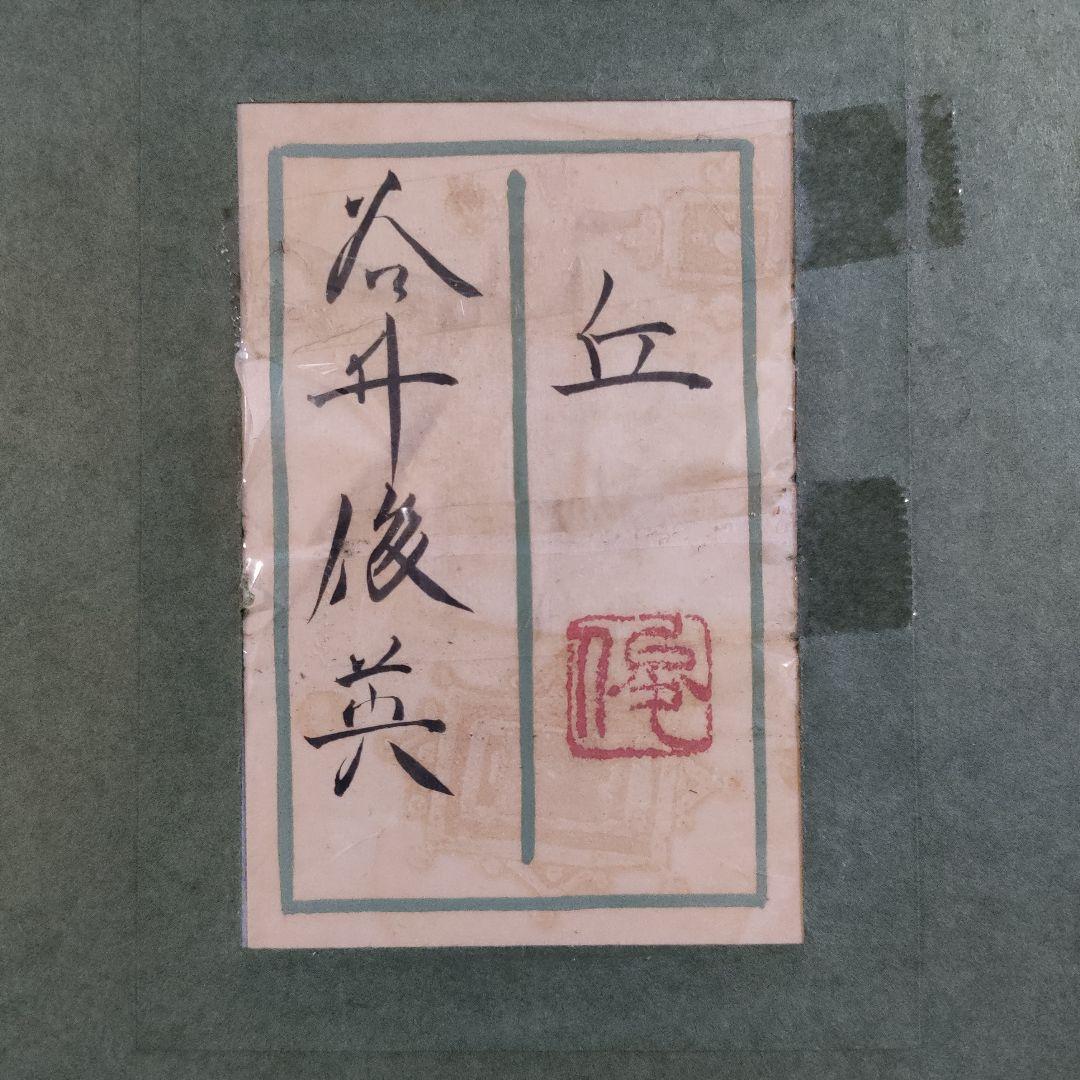 丘
俊
谷井俊英